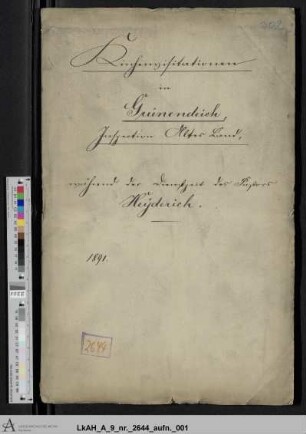 Kirchenvisitationen
in
Grünendeich,
Inspection Altes Land,
während der Dienstzeit des Pastors
Heyderich.
1891.
2644
LkAH_A_9_nr._2644_aufn._001